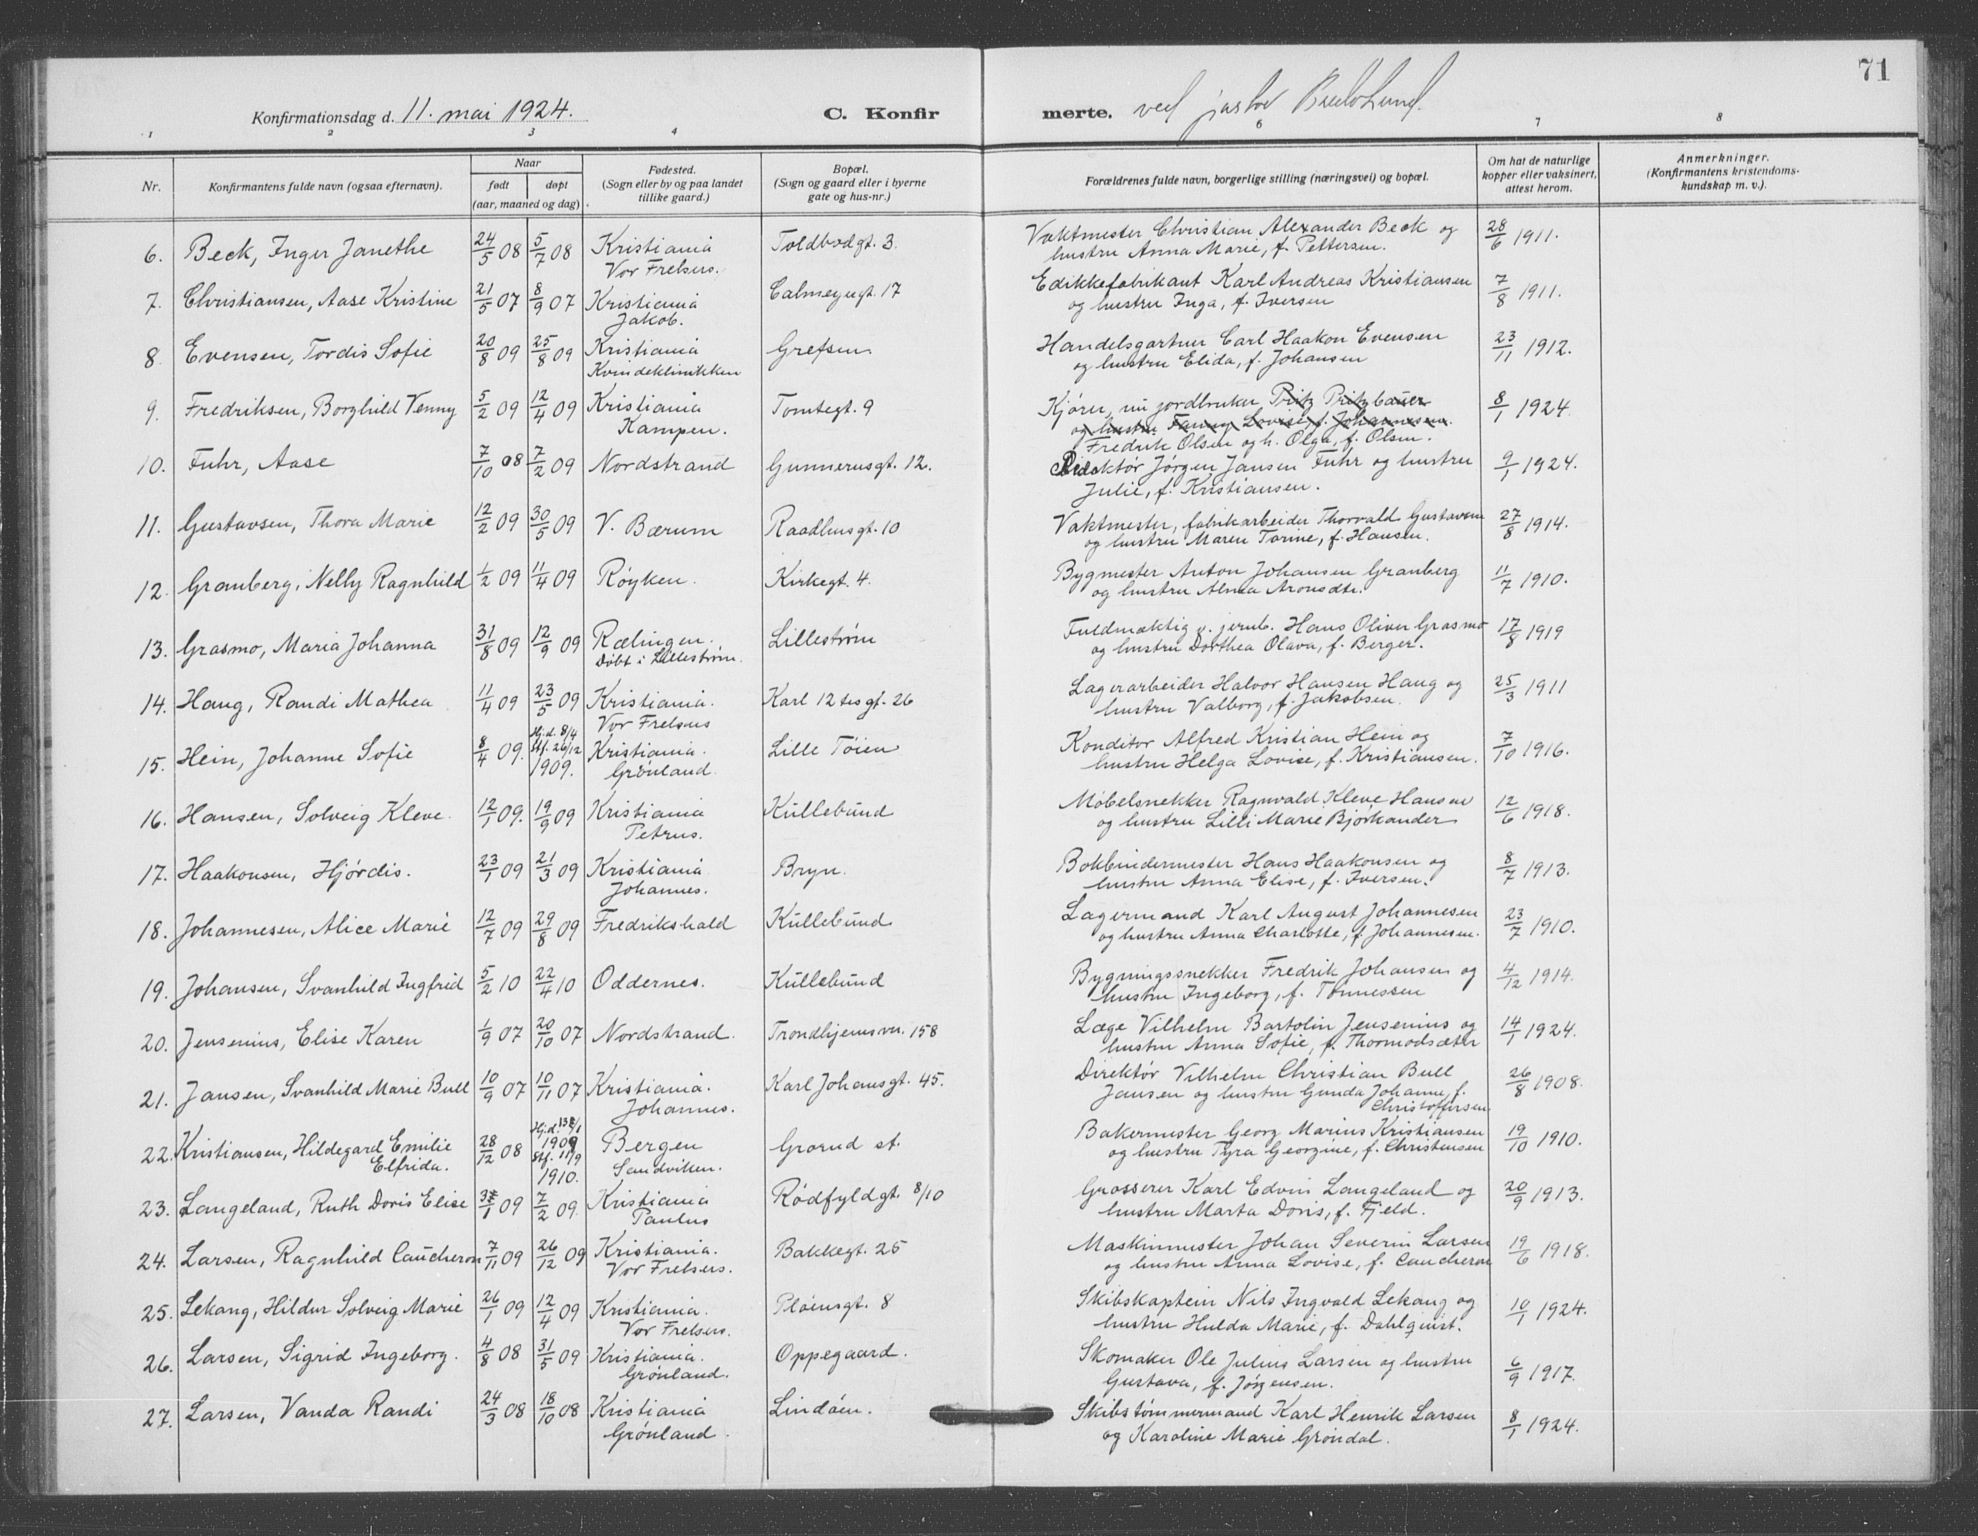 71
Konfirmationsdag d. 11. mai 1924. C. Konfirmerte. ved
1 2 3 4 6 7 8
Nr. Konfirmantens fulde navn (ogsaa efternavn). Naar født døpt (aar, maaned og dag). Fødested. (Sogn eller by og paa landet tillike gaard.) Bopæl. (Sogn og gaard eller i byerne gate og hus-nr.) Forældrenes fulde navn, borgerlige stilling (næringsvei) og bopæl. Om hat de naturlige kopper eller vaksinert, attest herom. Anmerkninger. (Konfirmantens kristendomskundskap m. v.).
6. Beck, Inger Janethe 24/5 08 5/7 08 Kristiania Toldbodgt. 3. Vaktmester Christian Alexander Beck og 28/6 1911.
Vor Frelsers. hustru Anna Marie, f. Pettersen.
7. Christiansen, Aase Kristine 21/5 07 8/9 07 Kristiania Calmeyegt. 17 Edikkefabrikant Karl Andreas Kristiansen 7/8 1911.
Jakob. og hustru Inga, f. Iversen
8. Evensen, Tordis Sofie 20/8 09 25/8 09 Kristiania Grefsen Handelsgartner Carl Haakon Evensen 23/11 1912.
Kvindeklinikken og hustru Elida, f. Johansen
9. Fredriksen, Borghild Venny 5/2 09 12/4 09 Kristiania Tomtegt. 9 Kjører, nu jordbruker Fritz Pritzbauer 8/1 1924.
Kampen. og hustru Fanny Lovise f. Johannesen.
Fredrik Olsen og h. Olga, f. Olsen.
10. Fuhr, Aase 7/10 08 7/2 09 Nordstrand Gunnerusgt. 12. Direktør Jørgen Jansen Fuhr og hustru 9/1 1924.
Julie, f. Kristiansen.
11. Gustavsen, Thora Marie 12/2 09 30/5 09 V. Bærum Raadhusgt. 10 Vaktmester, fabrikarbeider Thorvald Gustavsen 27/8 1914.
og hustru Maren Torine, f. Hansen.
12. Granberg, Nelly Ragnhild 1/2 09 11/4 09 Røyken. Kirkegt. 4. Bygmester Anton Johansen Granberg 11/7 1910.
og hustru Alma Aronsdtr.
13. Grasmo, Maria Johanna 31/8 09 12/9 09 Rælingen. Lillestrøm Fuldmæktig v. jernb. Hans Oliver Grasmo 17/8 1919
Døbt i Lillestrøm. og hustru Dorthea Olava, f. Berger.
14. Haug, Randi Mathea 11/4 09 23/5 09 Kristiania. Karl 12 tesgt. 26 Lagerarbeider Halvor Hansen Haug og 25/3 1911
Vor Frelsers hustru Valborg, f. Jakobsen.
15. Hein, Johanne Sofie 8/4 09. Hj.d. 8/4 Stf. 26/12 1909. Kristiania. Lille Tøien Konditor Alfred Kristian Hein og 7/10 1916.
Grønland. hustru Helga Lovise, f. Kristiansen.
16. Hansen, Solveig Kleve. 12/1 09. 19/9 09 Kristiania Kullebund Møbelsnekker Ragnvald Kleve Hansen 12/6 1918.
Petrus. og hustru Lilli Marie Bjørkander
17. Haakonsen, Hjørdis. 23/1 09 21/3 09 Kristiania Bryn. Bokbindermester Hans Haakonsen og 8/7 1913.
Johannes. hustru Anna Elise, f. Iversen.
18. Johannesen, Alice Marie 12/7 09 29/8 09 Fredrikshald Kullebund Lagermand Karl August Johannesen 23/7 1910.
og hustru Anna Charlotte, f. Johannesen.
19. Johansen, Svanhild Ingfrid 5/2 10 22/4 10 Oddernes. Kullebund Bygningssnekker Fredrik Johansen og 4/12 1914.
hustru Ingeborg, f. Tønnessen
20. Jensenius, Elise Karen 1/9 07 20/10 07 Nordstrand. Trondhjemsvn. 158 Læge Vilhelm Bartolin Jensenius og 14/1 1924.
hustru Anna Sofie, f. Thormodsæter
21. Jansen, Svanhild Marie Bull 10/9 07 10/11 07 Kristiania. Karl Johansgt. 45. Direktør Vilhelm Christian Bull 26/8 1908.
Johannes. Jansen og hustru Gunda Johanne, f.
Christoffersen
22. Kristiansen, Hildegard Emilie 28/12 08 Hj.d. 1909 Stf. 11/9 1910. Bergen Grorud st. Bakermester Georg Marius Kristiansen 19/10 1910.
Elfrida. Sandviken. og hustru Tyra Georgine, f. Christensen
23. Langeland, Ruth Doris Elise 09 7/2 09. Kristiania Rødfyldgt. 8/10 Grosserer Karl Edvin Langeland og 20/9 1913.
Paulus hustru Marta Doris, f. Fjeld.
24. Larsen, Ragnhild Caucheron 7/11 09 26/12 09 Kristiania. Bakkegt. 25 Maskinmester Johan Severin Larsen 19/6 1918.
Vor Frelsers. og hustru Anna Lovise, f. Caucheron
25. Lekang, Hildur Solveig Marie 26/1 09 12/4 09 Kristiania. Pløensgt. 8 Skibskaptein Nils Ingvald Lekang og 10/1 1924.
Vor Frelsers. hustru Hulda Marie, f. Dahlquist.
26. Larsen, Sigrid Ingeborg. 4/8 08 31/5 09 Kristiania. Oppegaard. Skomaker Ole Julius Larsen og hustru 6/9 1917.
Grønland. Gustava, f. Jørgensen.
27. Larsen, Vanda Randi 24/3 08 18/10 08 Kristiania Lindøen. Skibstømmermand Karl Henrik Larsen 8/1 1924.
Grønland. og Karoline Marie Grøndal.